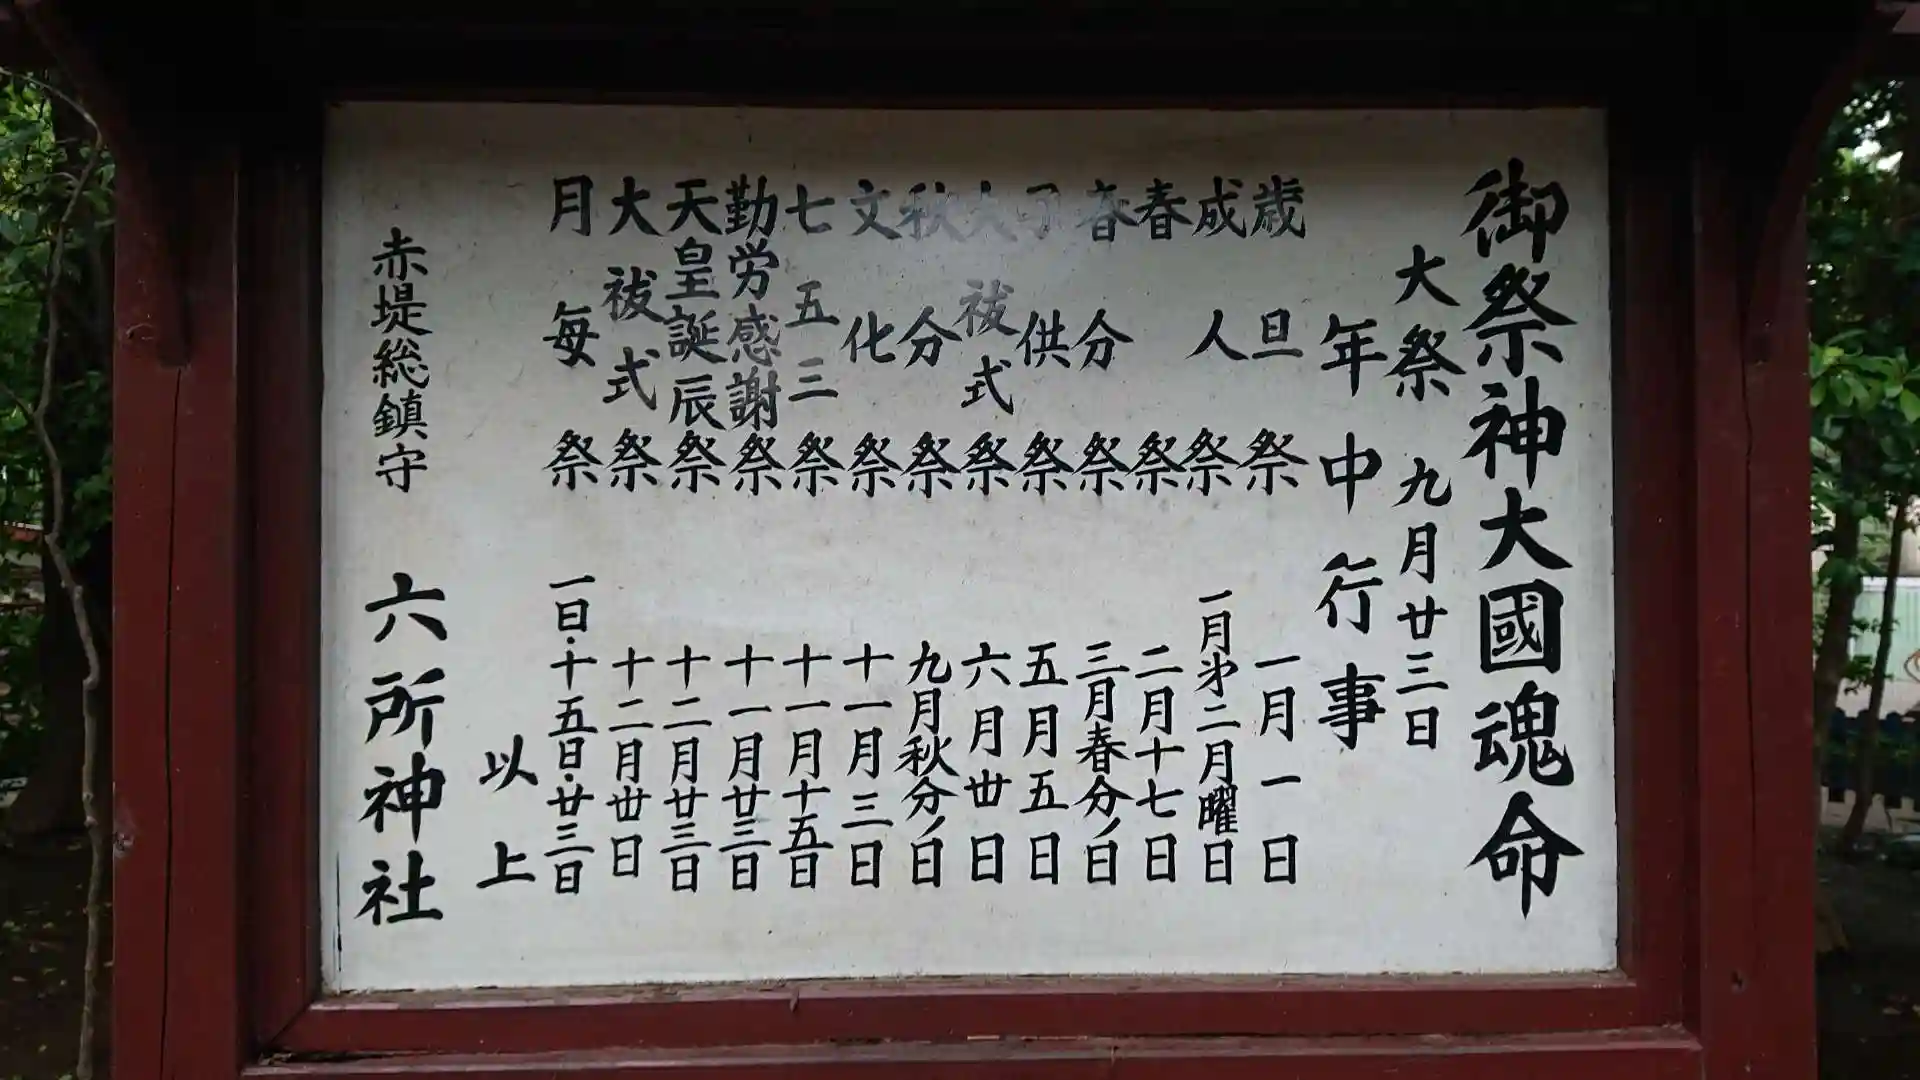 御祭神大國魂命
大祭 九月廿三日
年中行事
歳旦祭 一月一日
成人祭 一月㐧二月曜日
春祭 二月十七日
春分祭 三月春分ノ日
子供祭 五月五日
大祓式祭 六月丗日
秋分祭 九月秋分ノ日
文化祭 十一月三日
七五三祭 十一月十五日
勤労感謝祭 十一月廿三日
天皇誕辰祭 十二月廿三日
大祓式祭 十二月丗日
月毎祭 一日・十五日・廿三日
以上
赤堤総鎮守 六所神社